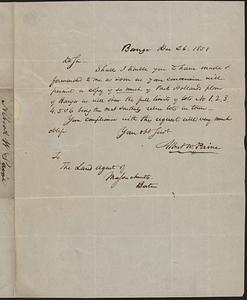 Bangor Dec 26. 1851
D Sir
Shall I trouble you to have made &
forwarded to me as soon as your convenience will
permit a copy of so much of Park Hollands plan
of Bangor as will show the full limits of lots No 1, 2, 3,
4, 5 & 6 being the most southern river lots in town.
Your compliance with this request will very much
oblige
Your obt Servt
Albert W. Paine
To
The Land Agent of
Massachusetts
Boston
Albert W Paine